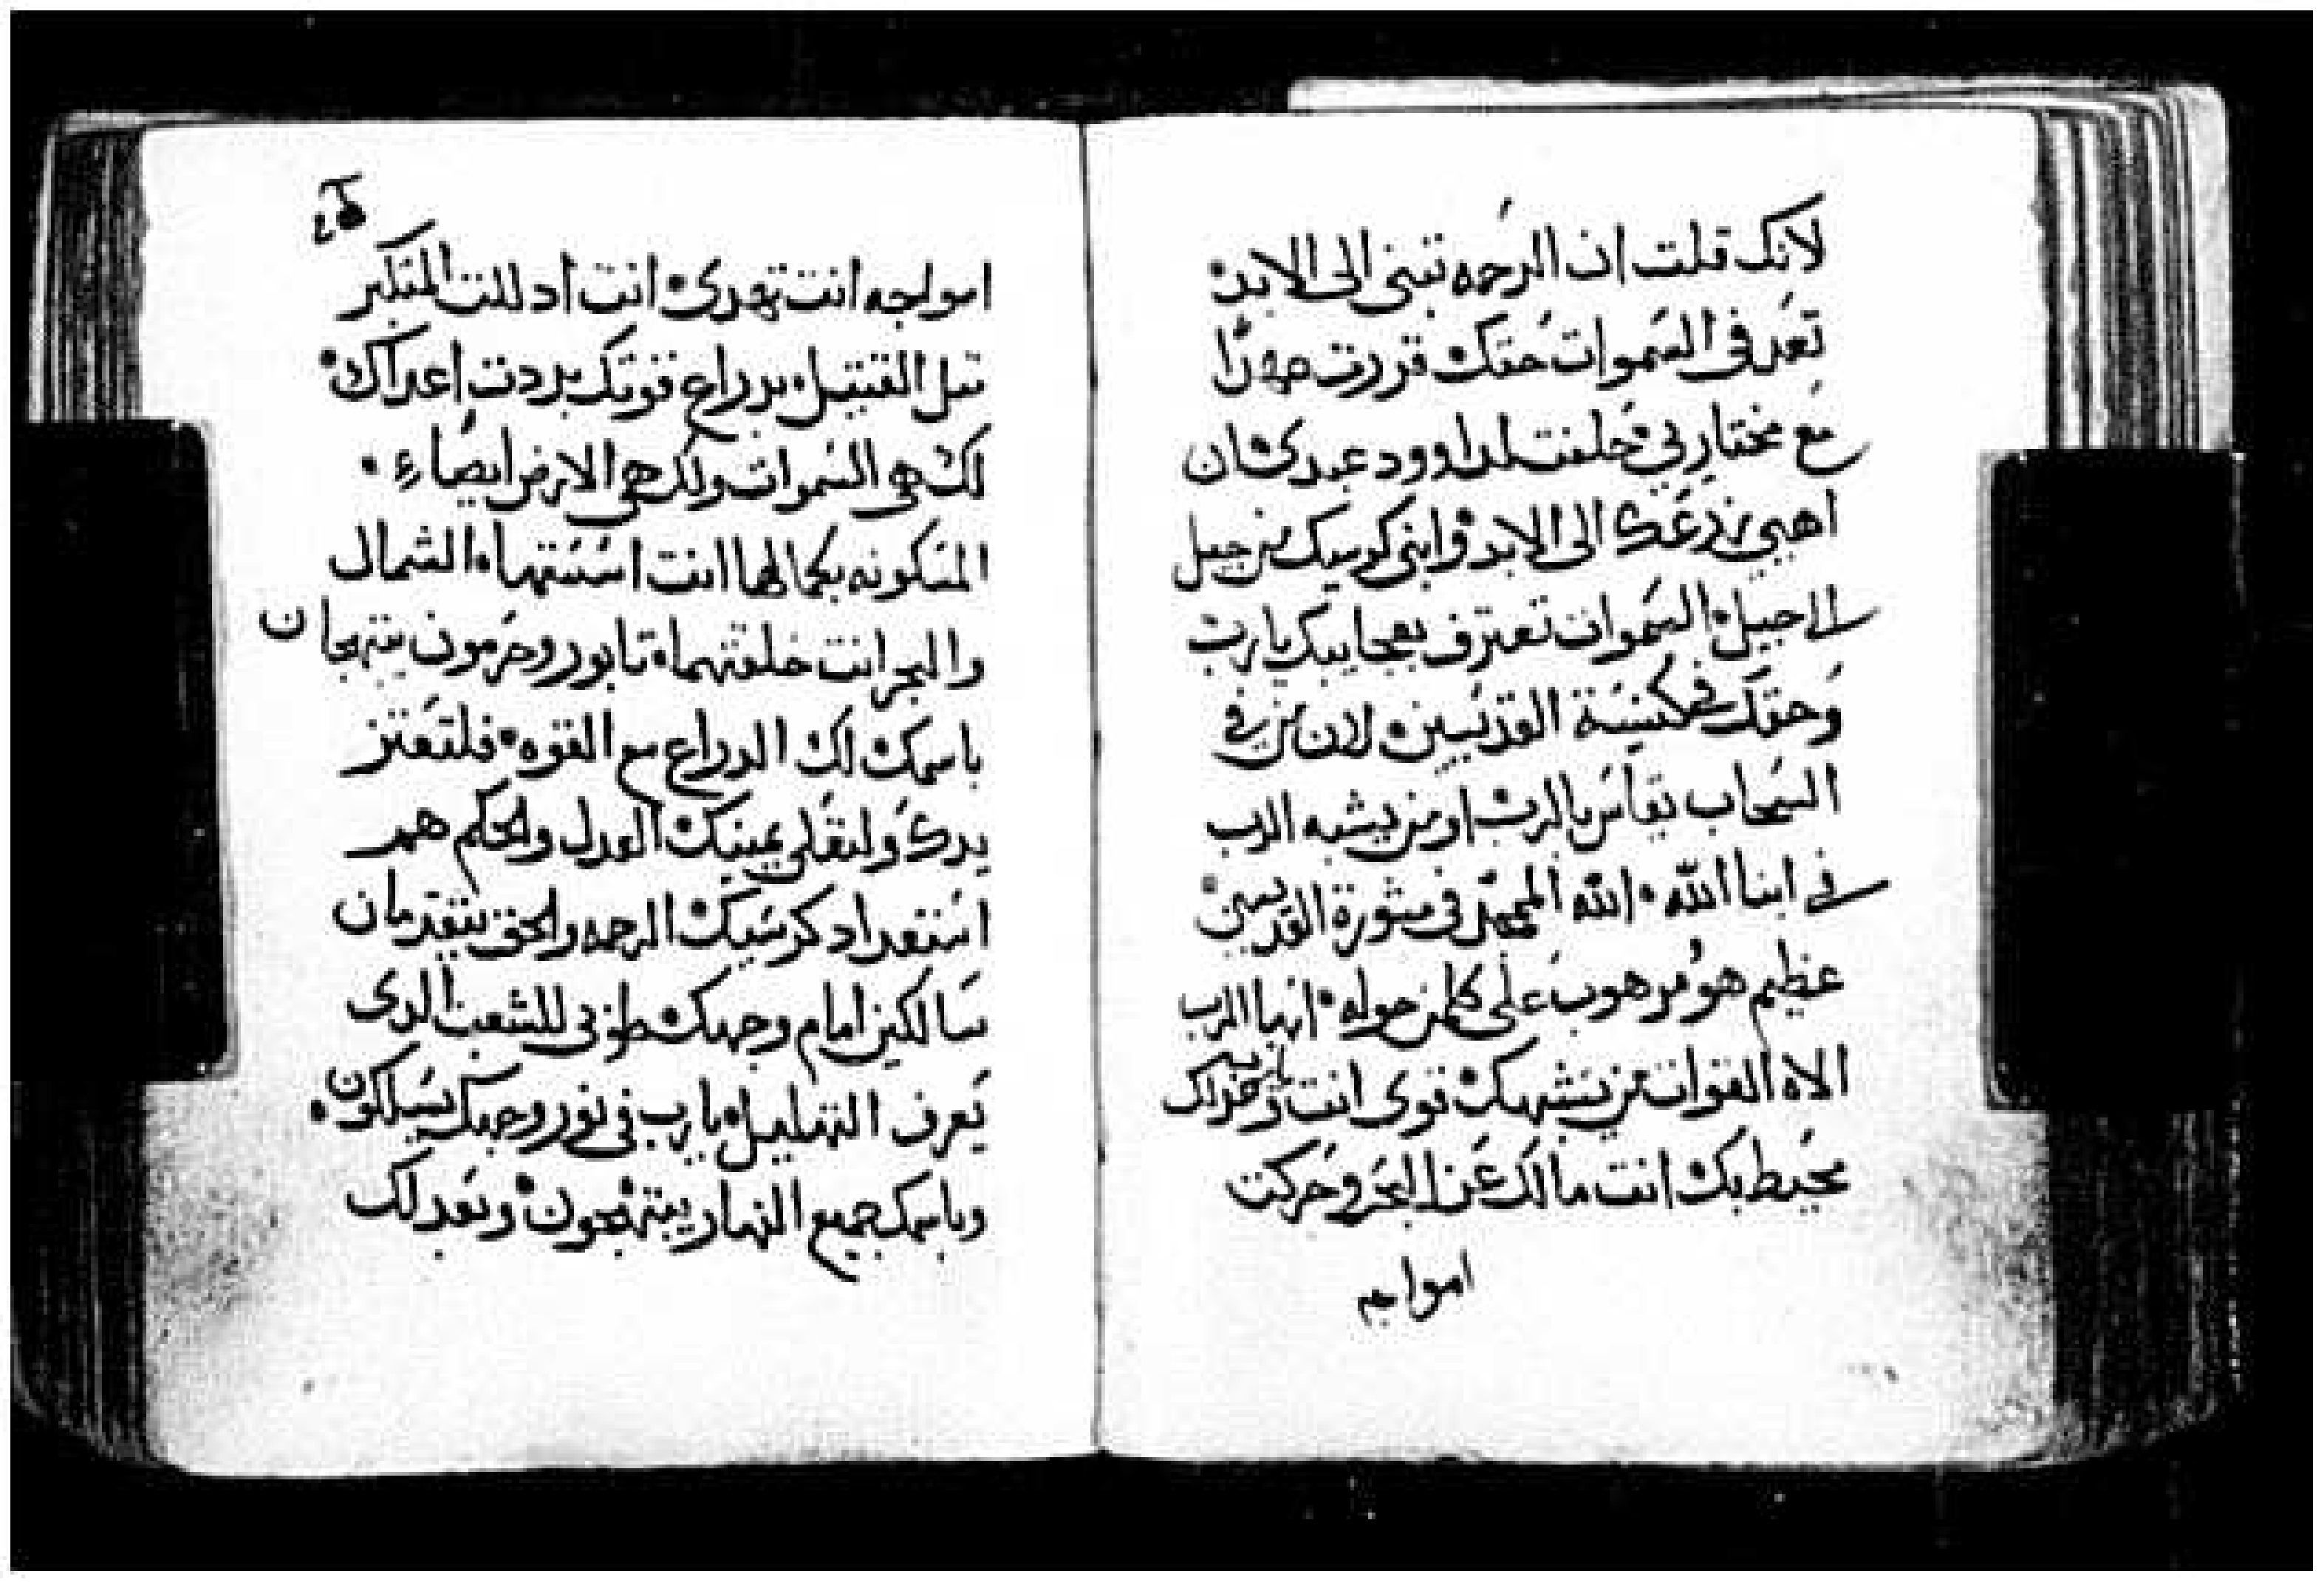 لانك قلت ان الرحمه تبني الى الابد
تعد في السموات حقك قررت عهدًا
مع مختاري حلفت لداوود عبدي ان
اهيي زرعك الى الابد وابني كرسيك من جيل
الى جيل السموات تعترف بعجايبك يارب
وحقك في كنيسة القديسين لان من في
السحاب يقاس بالرب او من يشبه الرب
في ابنا الله الله الممجد في مشورة القديسين
عظيم هو مرهوب على كلمن حوله ايها الرب
الاه القوات من يشبهك قوي انت يارب وحقك
محيط بك انت مالك عز البحر وحركت
امواجه
امواجه انت تهدي انت ادللت المتكبر
متل القتيل بدراع قوتك بددت اعداك
لك هي السموات ولك هي الارض ايضاء
المسكونه بكمالها انت اسستها الشمال
والبحر انت خلقتهما تابور وحرمون يبتهجان
باسمك لك الدراع مع القوه فلتعتز
يدك ولتعلى يمينك العدل والحكم هم
استعداد كرسيك الرحمه والحق يتقدمان
سالكين امام وجهك طوبى للشعب الدي
يعرف التهليل يارب في نور وجهك يسلكون
وباسمك جميع النهار يبتهجون وبعدلك